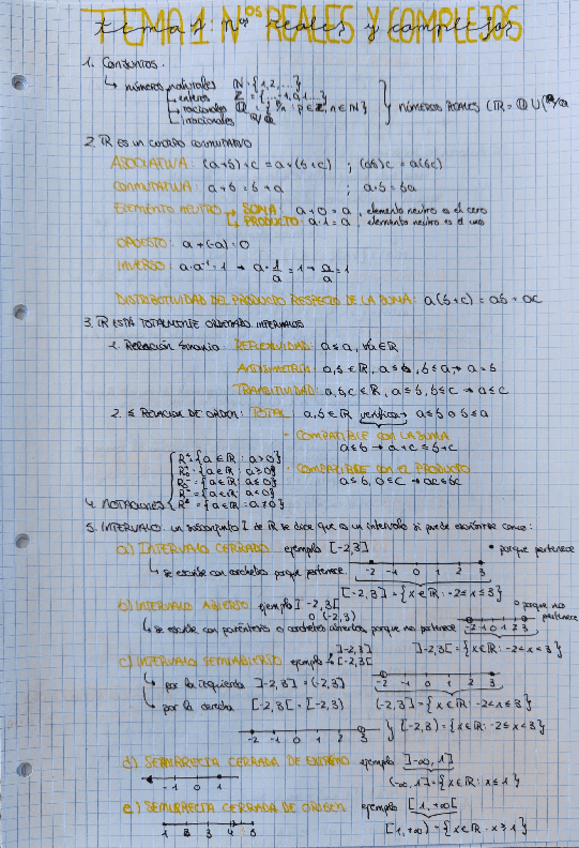 TEMA 1: Nos REALES Y COMPLEJOS
1. Conjuntos.
↳ números naturales N = {1, 2, ...}
enteros Z = {... -1, 0, 1 ...}
racionales Q = { p/n : p ∈ Z, n ∈ N }
irracionales
} NÚMEROS REALES (R = Q ∪ (R/Q
2. R ES UN CUERPO CONMUTATIVO
ASOCIATIVA: (a+b)+c = a+(b+c) ; (ab)c = a(bc)
CONMUTATIVA: a+b = b+a ; a·b = ba
ELEMENTO NEUTRO → SUMA: a+0 = a, elemento neutro es el cero
↳ PRODUCTO: a·1 = a, elemento neutro es el uno
OPUESTO: a+(-a) = 0
INVERSO: a·a⁻¹ = 1 → a·1/a = 1 → a/a = 1
DISTRIBUTIVIDAD DEL PRODUCTO RESPECTO DE LA SUMA: a(b+c) = ab + ac
3. R ESTÁ TOTALMENTE ORDENADO INTERVALOS
1. Relación binaria: REFLEXIVIDAD: a≤a, ∀a∈R
ANTISIMETRÍA: a,b ∈ R, a≤b, b≤a → a=b
TRANSITIVIDAD: a,b,c ∈ R, a≤b, b≤c → a≤c
2. ≤ RELACIÓN DE ORDEN: TOTAL a,b ∈ R verifica → a≤b o b≤a
- COMPATIBLE CON LA SUMA
a≤b → a+c ≤ b+c
- COMPATIBLE CON EL PRODUCTO
a≤b, 0≤c → ac≤bc
4. NOTACIONES
R⁺ = {a∈R : a>0}
R₀⁺ = {a∈R : a≥0}
R₀⁻ = {a∈R : a≤0}
R⁻ = {a∈R : a<0}
R* = {a∈R : a≠0}
5. INTERVALO: un subconjunto I de R se dice que es un intervalo si puede escribirse como:
a) INTERVALO CERRADO ejemplo [-2,3] • porque pertenece
↳ se escribe con corchetes porque pertenece. -2 -1 0 1 2 3
[-2,3] = {x∈R : -2≤x≤3}
b) INTERVALO ABIERTO ejemplo ]-2,3[ o porque no pertenece
o (-2,3)
↳ se escribe con paréntesis o corchetes abiertos porque no pertenece -2 -1 0 1 2 3
]-2,3[ = {x∈R : -2<x<3}
c) INTERVALO SEMIABIERTO ejemplo ]-2,3]
[-2,3[
↳ por la izquierda ]-2,3] = (-2,3] -2 -1 0 1 2 3
↳ por la derecha [-2,3[ = [-2,3) (-2,3] = {x∈R : -2<x≤3}
-2 -1 0 1 2 3 y [-2,3) = {x∈R : -2≤x<3}
d) SEMIRRECTA CERRADA DE EXTREMO ejemplo ]-∞,1]
-1 0 1 (-∞,1] = {x∈R : x≤1}
e) SEMIRRECTA CERRADA DE ORIGEN ejemplo [1,+∞[
1 2 3 4 5 [1,+∞) = {x∈R : x≥1}